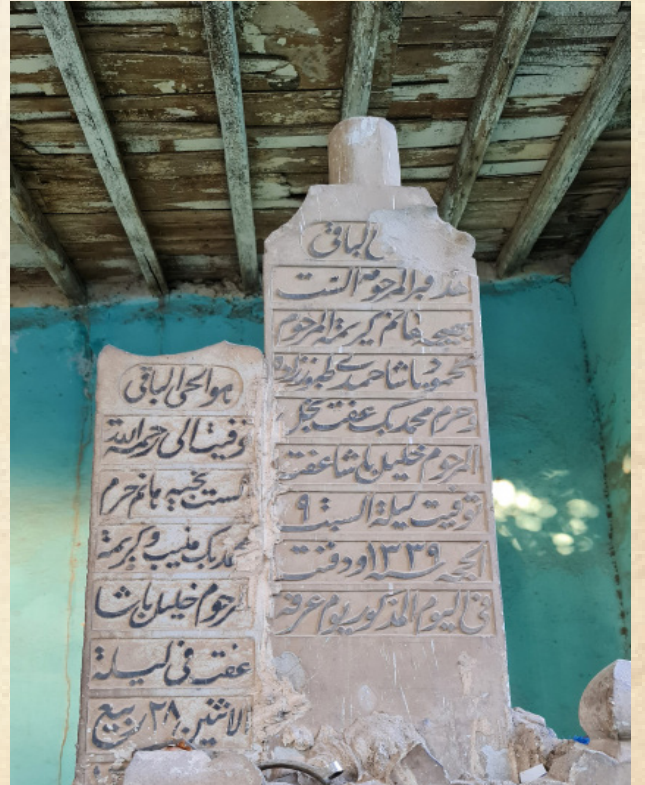 الباقي
هذا قبر المرحومة الست
بهيجه هانم كريمة المرحوم
محمود باشا حمدي طبوزاده
وحرم محمد بك عفت نجل
المرحوم خليل باشا عفت
توفيت ليلة السبت ٩
الحجه سنه ١٣٣٩ ودفنت
في اليوم المذكور يوم عرفه
هو الحي الباقي
توفيت الى رحمة الله
الست نجيبه هانم حرم
محمد بك منيب وكريمة
المرحوم خليل باشا
عفت في ليلة
الاثنين ٢٨ ربيع